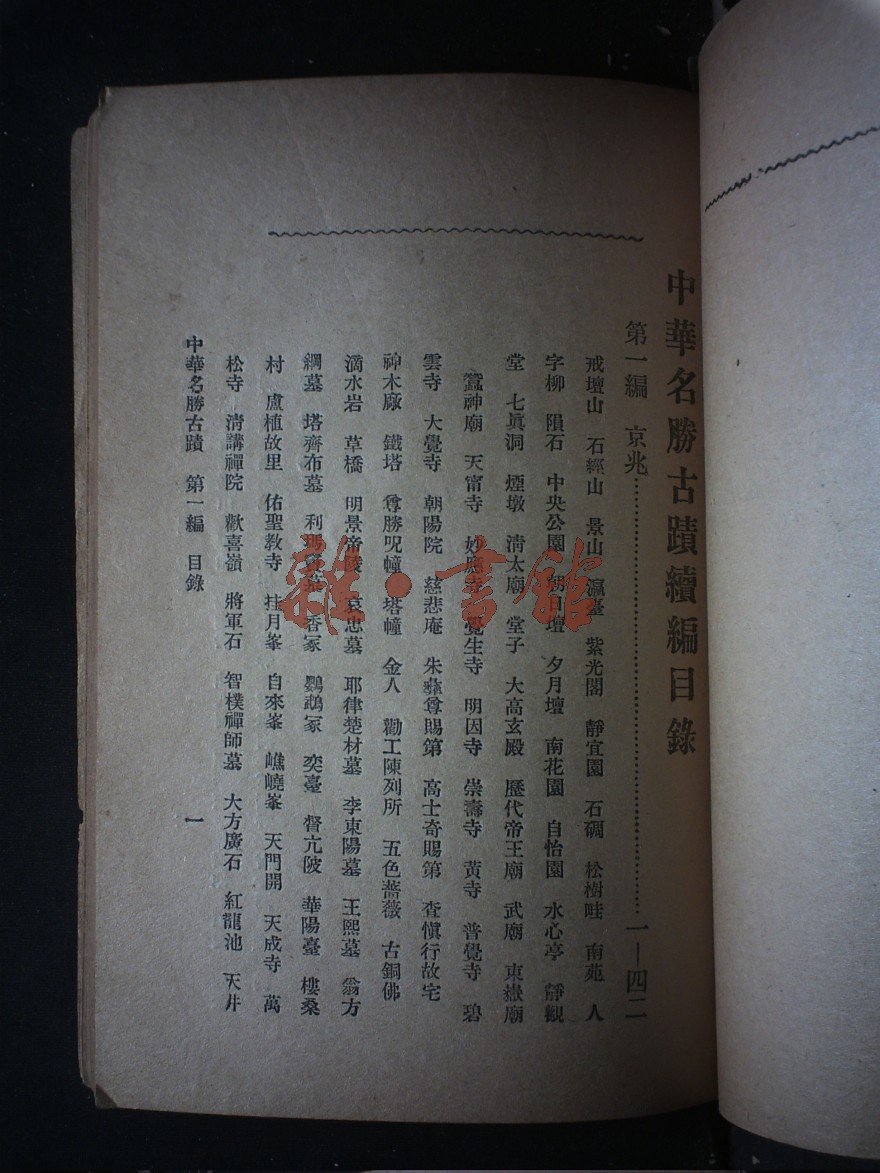 中華名勝古蹟續編目錄
第一編 京兆…………………………一—四二
戒壇山 石經山 景山 瀛臺 紫光閣 靜宜園 石磵 松樹畦 南苑 人
字柳 隕石 中央公園 朝日壇 夕月壇 南花園 自怡園 水心亭 靜觀
堂 七眞洞 煙墩 清太廟 堂子 大高玄殿 歷代帝王廟 武廟 東嶽廟
蠶神廟 天甯寺 妙應寺 覺生寺 明因寺 崇壽寺 黃寺 普覺寺 碧
雲寺 大覺寺 朝陽院 慈悲庵 朱彝尊賜第 高士奇賜第 查愼行故宅
神木厰 鐵塔 尊勝呪幢 塔幢 金人 勸工陳列所 五色薔薇 古銅佛
滴水岩 草橋 明景帝陵 哀忠墓 耶律楚材墓 李東陽墓 王熙墓 翁方
綱墓 塔齊布墓 利瑪竇墓 香冢 鸚鵡冢 奕臺 督亢陂 華陽臺 樓桑
村 盧植故里 佑聖敎寺 挂月峯 自來峯 嶕嶢峯 天門開 天成寺 萬
松寺 清講禪院 歡喜嶺 將軍石 智樸禪師墓 大方廣石 紅龍池 天井
中華名勝古蹟 第一編 目錄 一
雜·書館